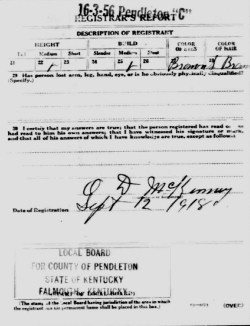 16-3-56 Pendleton "C"
REGISTRAR'S REPORT
DESCRIPTION OF REGISTRANT
HEIGHT BUILD COLOR OF EYES COLOR OF HAIR
Tall Medium Short Slender Medium Stout
21 22 23 24 25 26 Brown Brown
29 Has person lost arm, leg, hand, eye, or is he obviously physically disqualified?
(Specify.)
30 I certify that my answers are true; that the person registered has read or has
had read to him his own answers; that I have witnessed his signature or mark,
and that all of his answers of which I have knowledge are true, except as follows:
D McKinney
Date of Registration Sept 12 1918
LOCAL BOARD
FOR COUNTY OF PENDLETON
STATE OF KENTUCKY
FALMOUTH, KENTUCKY
(The stamp of the Local Board having jurisdiction of the area in which
the registrant has his permanent home shall be placed in this box.)
(OVER)